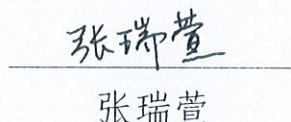 张瑞萱
张瑞萱